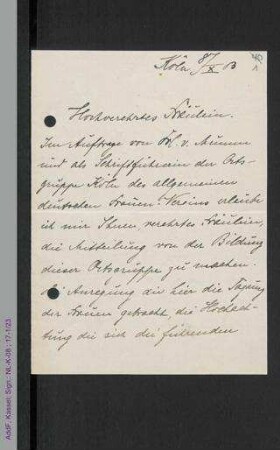 Köln, 8/X 03
Hochverehrtes Fräulein.
Im Auftrage von Frl. v. Mumm
und als Schriftführerin der Orts-
gruppe Köln des allgemeinen
deutschen Frauen-Vereins erlaube
ich mir Ihnen verehrtes Fräulein,
die Mitteilung von der Bildung
dieser Ortsgruppe zu machen.
Anregung die hier die Tagung
der Frauen gebracht, die Hochach-
tung die sich die führenden
AddF, Kassel; Sign.: NL-K-08 ; 17-1/23